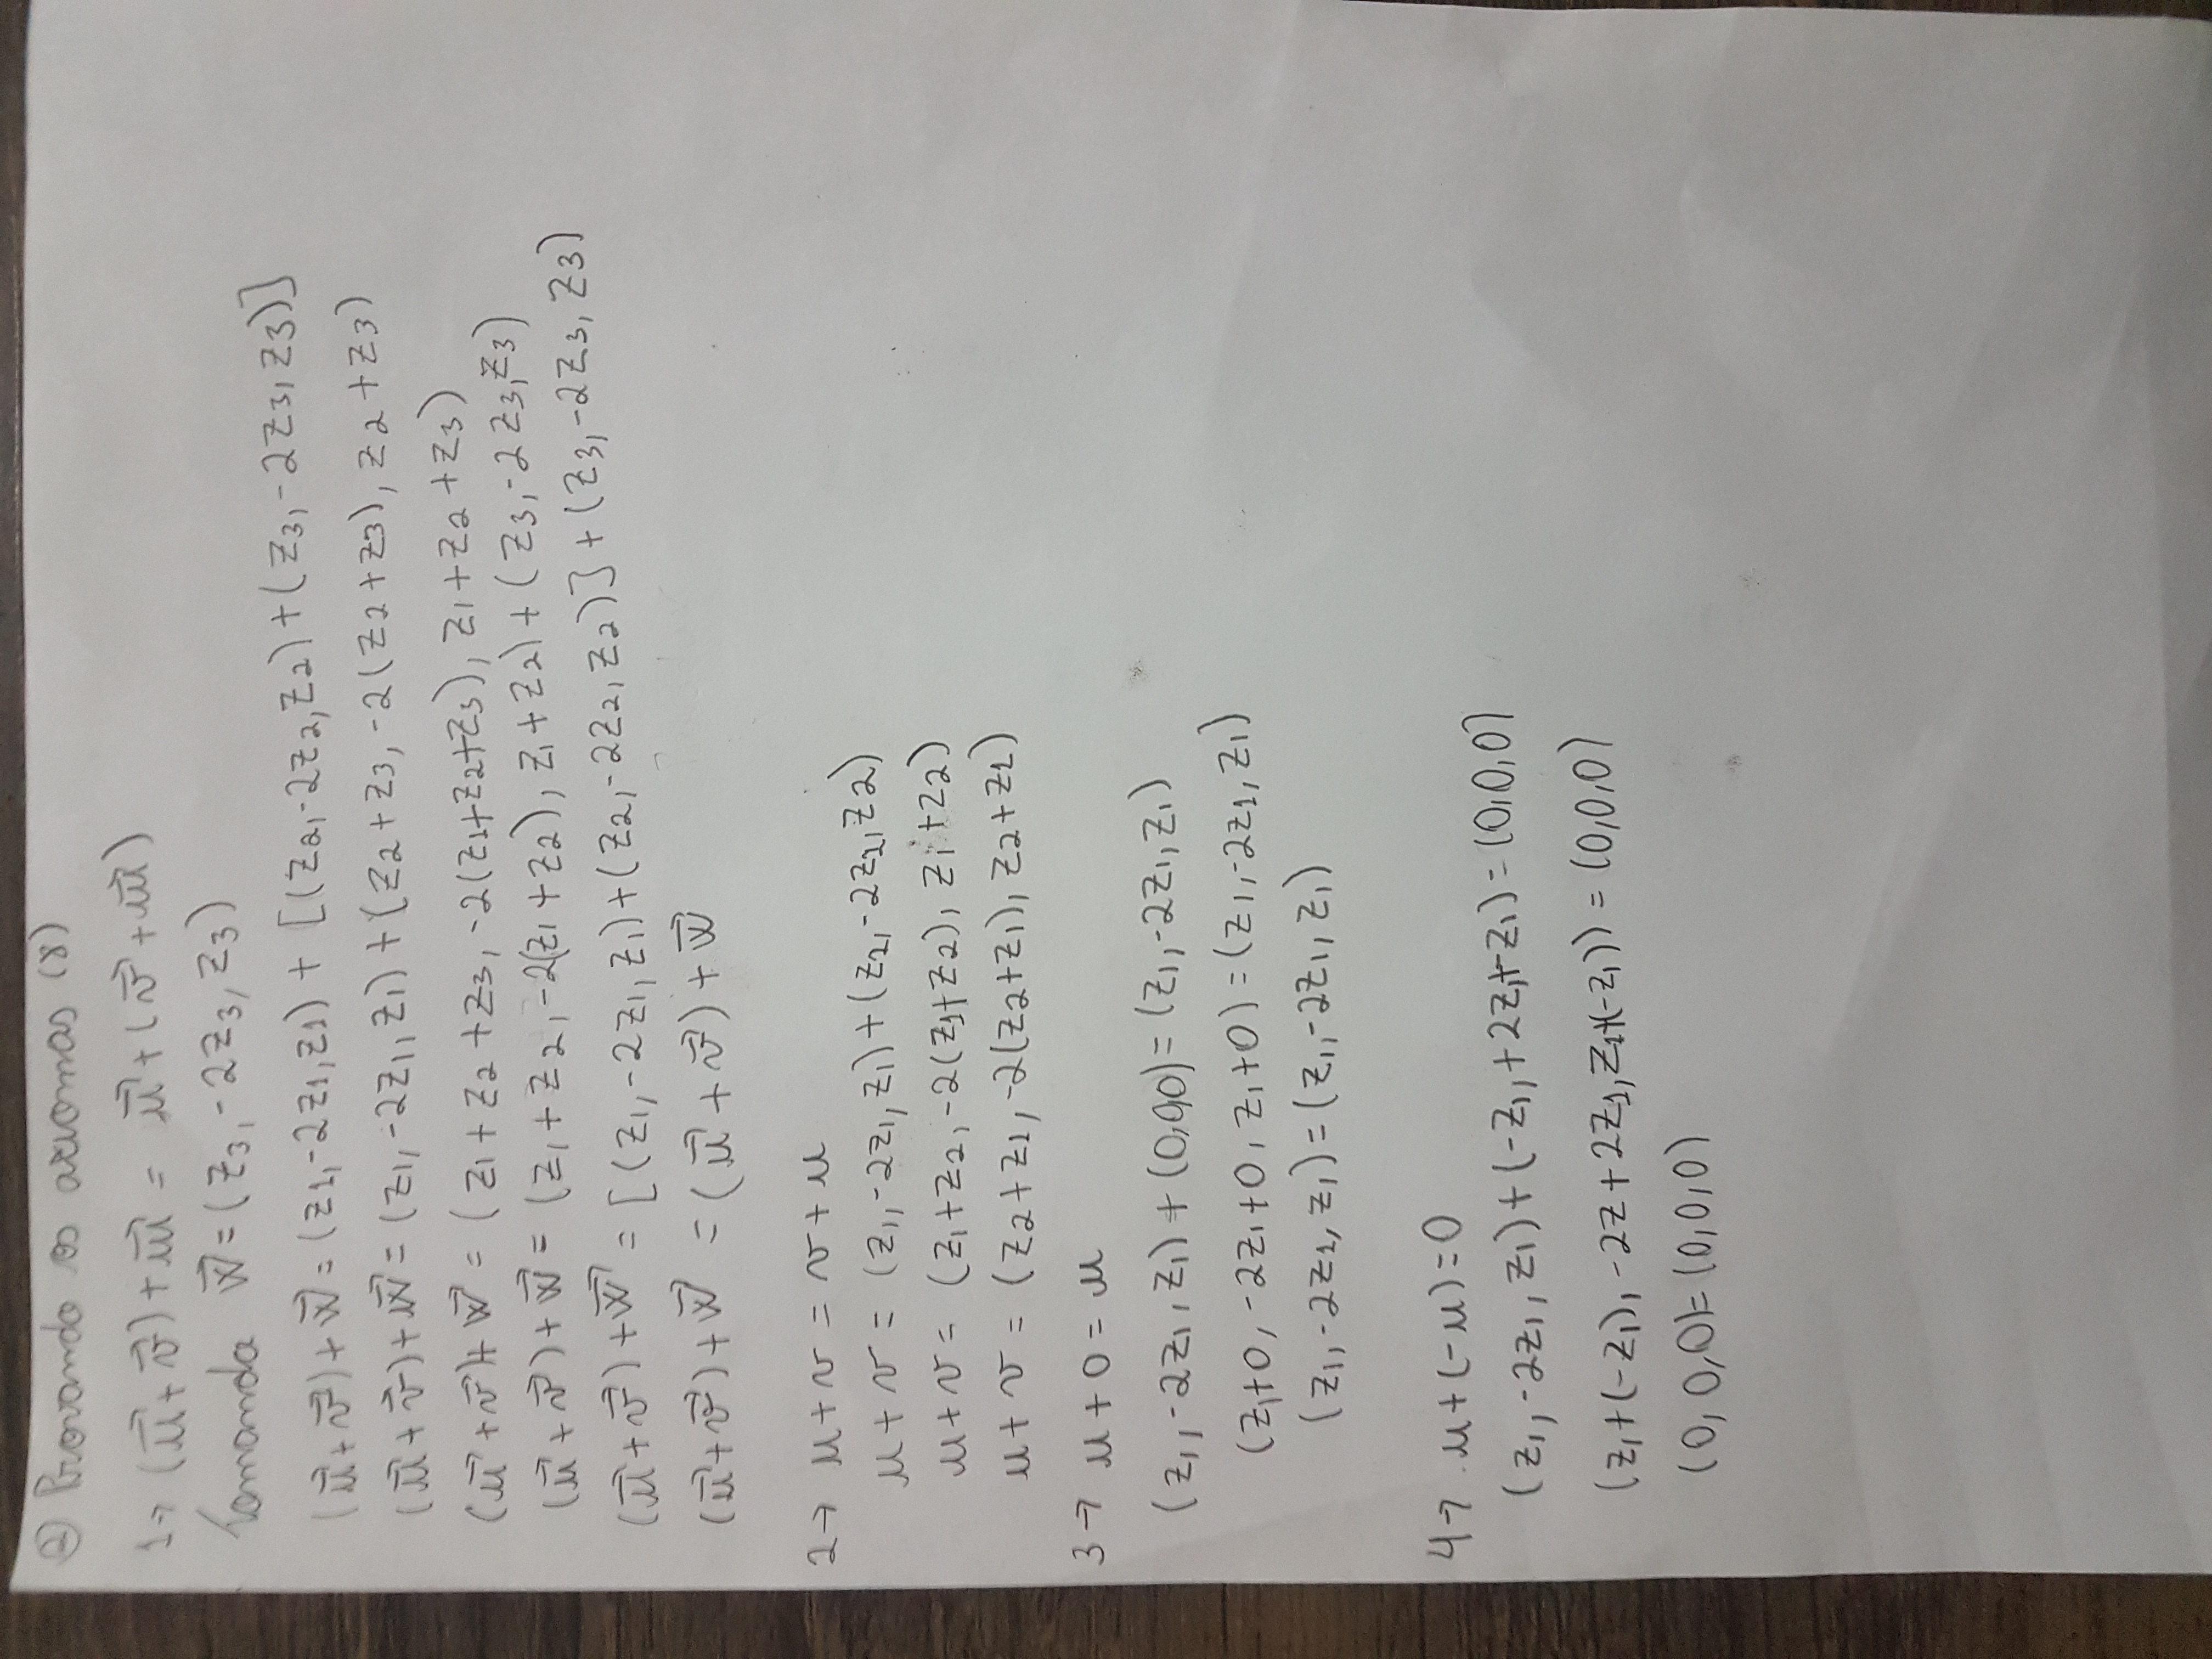 ② Provando os axiomas (8)
1→ (u⃗+v⃗)+w⃗ = u⃗+(v⃗+w⃗)
Tomando w⃗=(z₃,-2z₃,z₃)
(u⃗+v⃗)+w⃗=(z₁,-2z₁,z₁) + [(z₂,-2z₂,z₂)+(z₃,-2z₃,z₃)]
(u⃗+v⃗)+w⃗=(z₁,-2z₁,z₁)+(z₂+z₃,-2(z₂+z₃),z₂+z₃)
(u⃗+v⃗)+w⃗ = (z₁+z₂+z₃,-2(z₁+z₂+z₃),z₁+z₂+z₃)
(u⃗+v⃗)+w⃗= (z₁+z₂,-2(z₁+z₂),z₁+z₂)+(z₃,-2z₃,z₃)
(u⃗+v⃗)+w⃗ = [(z₁,-2z₁,z₁)+(z₂,-2z₂,z₂)]+(z₃,-2z₃,z₃)
(u⃗+v⃗)+w⃗ = (u⃗+v⃗)+w⃗
2→ u+v = v+u
u+v = (z₁,-2z₁,z₁)+(z₂,-2z₂,z₂)
u+v= (z₁+z₂,-2(z₁+z₂),z₁+z₂)
u+v = (z₂+z₁,-2(z₂+z₁),z₂+z₁)
3→ u+0=u
(z₁,-2z₁,z₁)+(0,0,0)=(z₁,-2z₁,z₁)
(z₁+0,-2z₁+0,z₁+0)=(z₁,-2z₁,z₁)
(z₁,-2z₁,z₁)=(z₁,-2z₁,z₁)
4→ u+(-u)=0
(z₁,-2z₁,z₁)+(-z₁,+2z₁,-z₁)=(0,0,0)
(z₁+(-z₁),-2z+2z₁,z₁+(-z₁))=(0,0,0)
(0,0,0)=(0,0,0)